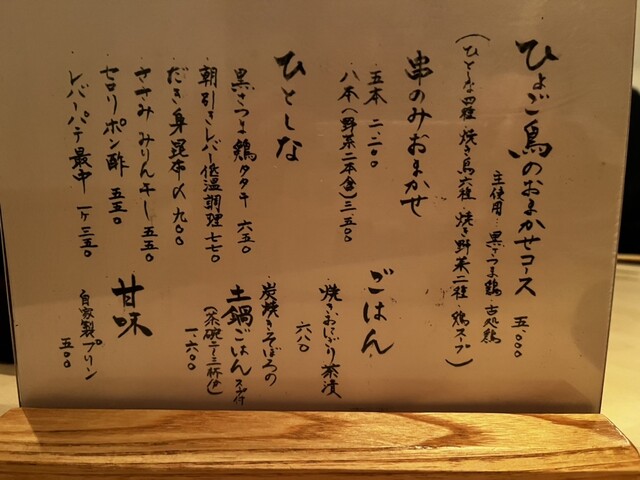 ひよこ鳥のおまかせコース 五.000
主使用…黒さつま鶏・古処鶏
(ひとしな四種・焼き鳥六種・焼き野菜二種・鶏スープ)
串のみおまかせ
五本 二.二00
八本(野菜二本含) 三.五0
ひとしな
・黒さつま鶏タタキ 六五0
・朝引きレバー低温調理 七七0
・だき身昆布〆 九00
・ささみみりん干し 五五0
・セロリポン酢 五五0
・レバーパテ最中 一ケ 三五0
ごはん
・焼きおにぎり茶漬
六八0
・炭焼きそぼろの
土鍋ごはん スープ付
(茶碗二~三杯分)
一.六00
甘味
・自家製プリン
五00